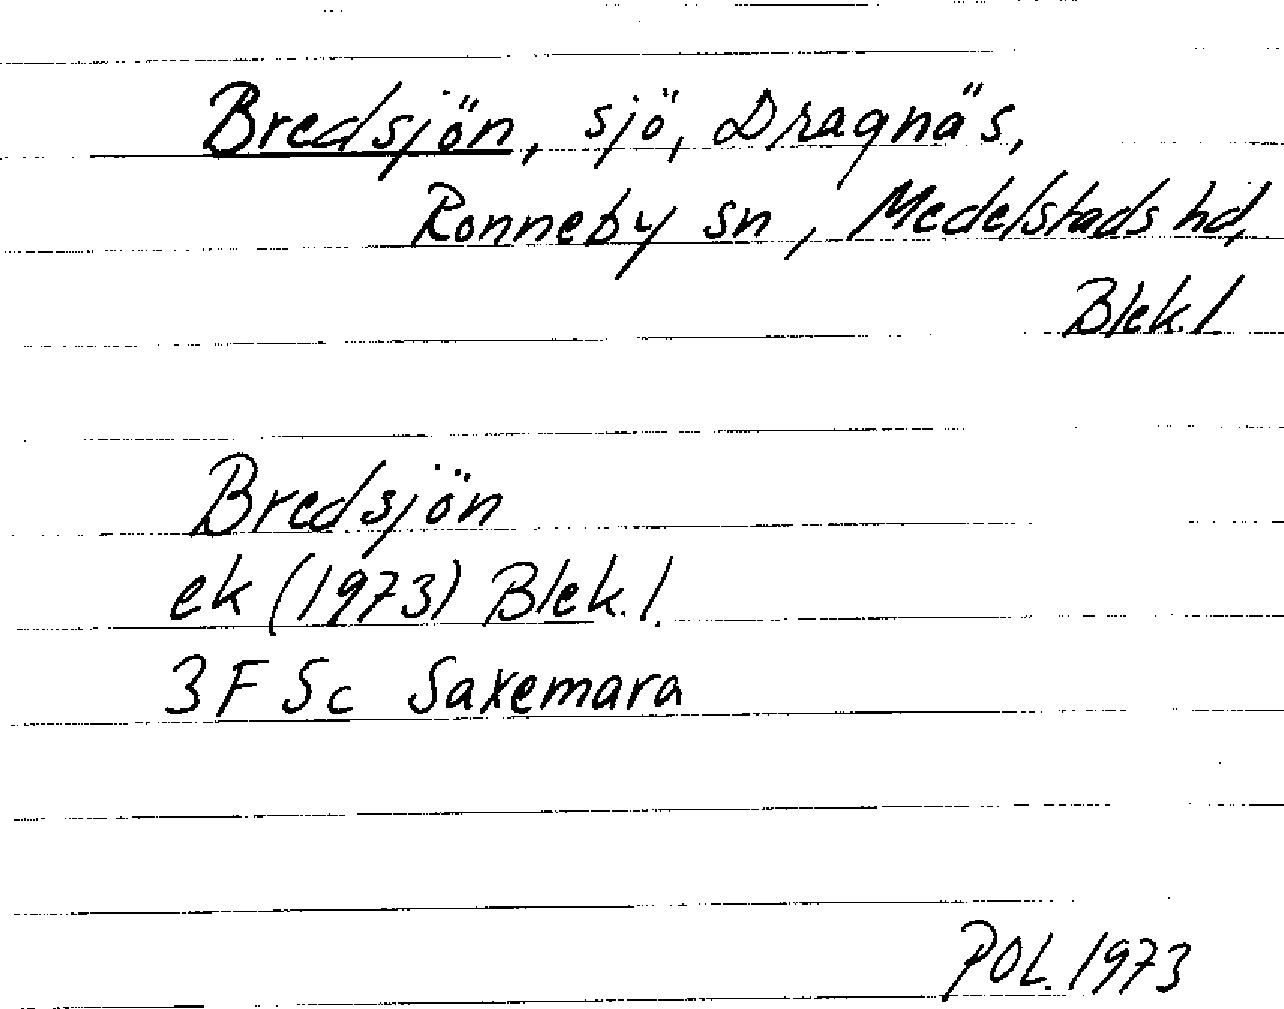 Bredsjön, sjö, Dragnäs,
Ronneby sn, Medelstads hd,
Blek.l
Bredsjön
ek (1973) Blek.l.
3F Sc Saxemara
POL. 1973